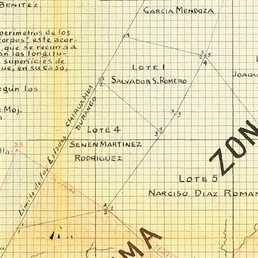 Benitez
perimetros de los
corpus, este acor-
, que se recurra a
an las longitu-
superficies de
ue, en su caso,
egún los
Moj.
GARCIA MENDOZA
LOTE 1
SALVADOR S. ROMERO
JOAQU
CHIHUAHUA
DURANGO
Límite de los Estados
LOTE 4
SENEN MARTINEZ
RODRIGUEZ
ZON
LOTE 5
NARCISO DIAZ ROMAN
MA